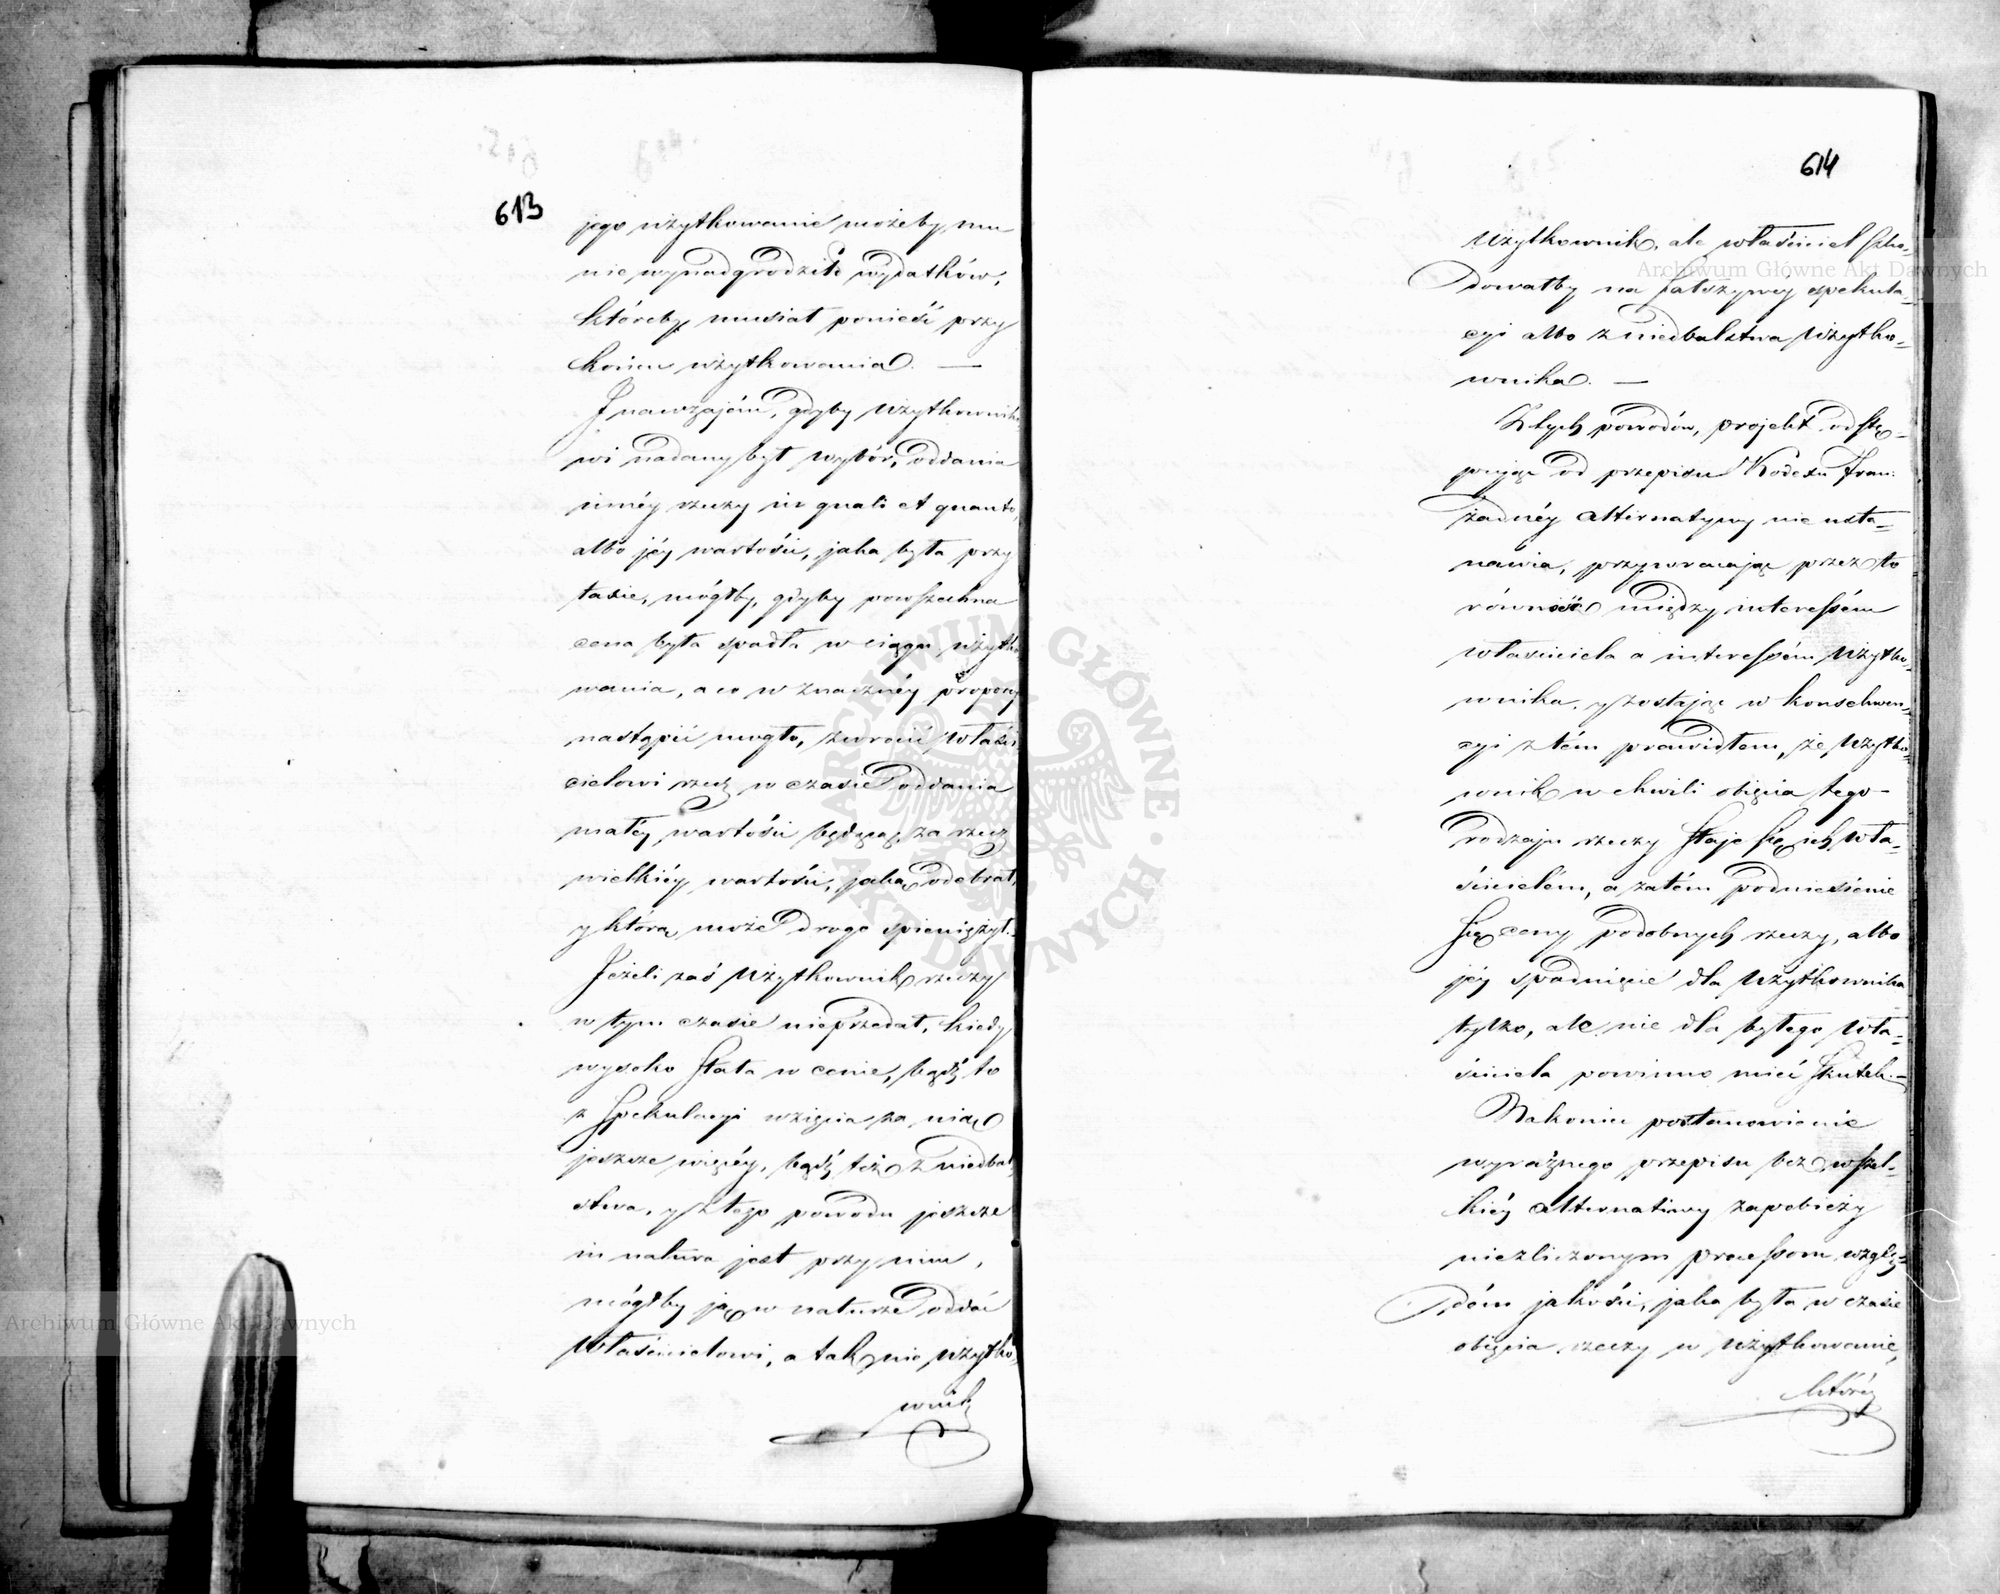 613
jego użytkowanie możeby mu
nie wynadgrodziło wydatków,
któreby musiał ponieść przy
końcu użytkowania. —
I nawzajém, gdyby użytkowniko
wi nadany był wybór, oddania
innéy rzeczy in quali et quanto,
albo jéy wartości, jaka była przy
taxie, mógłby, gdyby powszechna
cena była spadła w ciągu użytko
wania, a co w znacznéy propory
nastąpić mogło, zwrócić właści
cielowi rzecz w czasie oddania
małéy wartości będącą, za rzecz
wielkiéy wartości, jaką odebrał,
y którą może drogo spieniężył.
Jeżeli zaś użytkownik rzeczy
w tym czasie nieprzedał, kiedy
wysoko stała w cenie, bądź to
z spekulacyi wzięcia za nią
jeszcze więcéy, bądź też z niedbal
stwa, y z tego powodu jeszcze
in natura jest przy nim,
mógłby ją w naturze oddać
Właścicielowi, a tak nie użytko-
wnik
614
Użytkownik, ale właściciel szko-
dowałby na fałszywey spekula-
cyi albo z niedbalstwa użytko-
wnika. —
Z tych powodów, projekt odstę-
pując od przepisu Kodexu fran:
żadnéy alternatywy nie usta-
nawia, przywracając przez to
równość między interessém
właściciela a interessém użytko-
wnika, y zostając w konsekwen-
cyi z tém prawidłem, że użytko-
wnik w chwili objęcia tego
rodzaju rzeczy staje się ich wła-
ścicielém, a zatém podniesienie
się ceny podobnych rzeczy, albo
jéy spadnięcie dla użytkownika
tylko, ale nie dla byłego wła-
ściciela powinno mieć skutek. —
Nakoniec postanowienie
wyraźnego przepisu bez wszel-
kiéy alternatiwy zapobieży
niezliczonym processom wzglę-
dém jakości, jaka była w czasie
objęcia rzeczy w użytkowanie,
któréy
Archiwum Główne Akt Dawnych
Archiwum Główne Akt Dawnych
ARCHIWUM GŁÓWNE AKT DAWNYCH